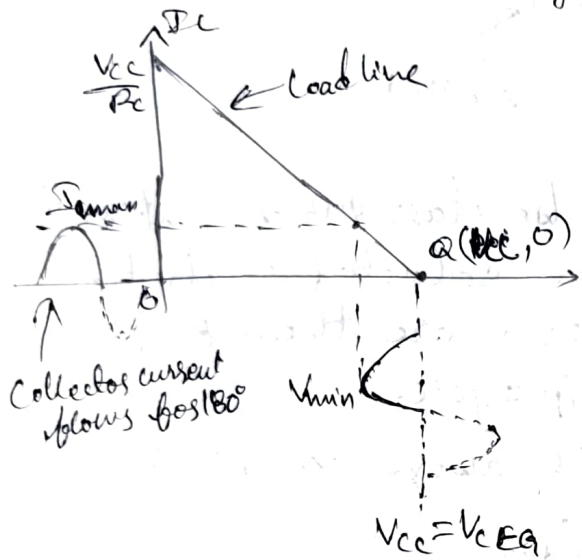 Ic
Vcc
Rc
Load line
Icmax
Q(Vcc, 0)
0
Collector current
flows for 180°
Vmin
Vcc = VCEQ